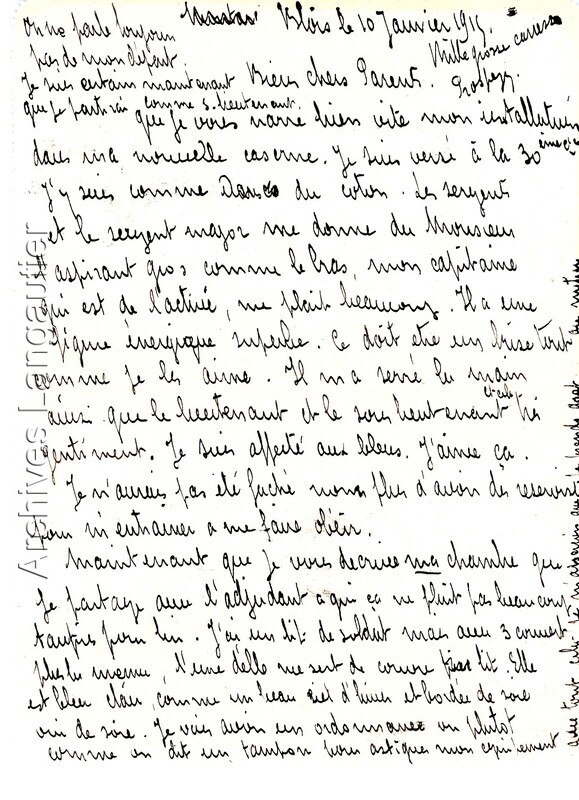 Blois le 10 Janvier 1915.
On ne parle toujours
pas de mon départ.
Je suis certain maintenant
que je partirai comme s. lieutenant.
Mille grosses caresses
Bien chers Parents.
que je vous narre bien vite mon installation
dans ma nouvelle caserne. Je suis versé à la 30 ème Cie
J'y suis comme Dans du coton. Les sergents
et le sergent major me donne du Monsieur
aspirant gros comme le bras, mon capitaine
qui est de l'active, me plait beaucoup. Il a une
figure énergique superbe. Ce doit etre un brise tout
comme je les aime. Il m'a serré la main
ainsi que le lieutenant et le sous lieutenant très
gentiment. Je suis affecté aux bleus. J'aime ça.
Je n'aurais pas été faché non plus d'avoir des réservistes
pour m'entrainer a me faire obéir.
Maintenant que je vous décrive ma chambre que
je partage avec l'adjudant à qui ça ne plait pas beaucoup
tant pis pour lui. J'ai un lit de soldat mais avec 3 couvert
plus la mienne, l'une d'elle me sert de couvre lit. Elle
est bleu clair, comme un beau ciel d'hiver et bordée de soie
oui de soie. Je vais avoir un ordonnance ou plutot
comme on dit un tampon pour astiquer mon équipement
avec tout cela
Archives Langautier